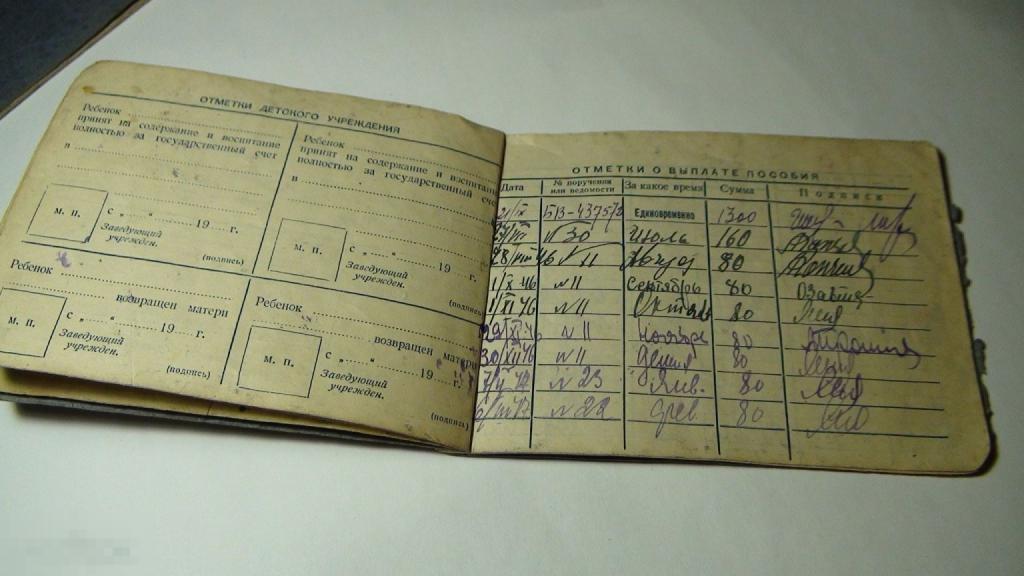 ОТМЕТКИ ДЕТСКОГО УЧРЕЖДЕНИЯ
Ребенок
принят на содержание и воспитание
полностью за государственный счет
в
м. п.
с „ „ 19 г.
Заведующий
учрежден.
(подпись)
Ребенок
принят на содержание и воспитание
полностью за государственный счет
в
м. п.
с „ „ 19 г.
Заведующий
учрежден.
(подпись)
Ребенок
возвращен матери
м. п.
с „ „ 19 г.
Заведующий
учрежден.
(подпись)
Ребенок
возвращен матери
м. п.
с „ „ 19 г.
Заведующий
учрежден.
(подпись)
ОТМЕТКИ О ВЫПЛАТЕ ПОСОБИЯ
Дата № поручения или ведомости За какое время Сумма Подписи
21/IX БВ-4375/2 Единовременно 1300
№ 30 Июль 160
№ 11 80
1/X 46 № 11 сентябрь 80
1/XI 46 № 11 Октяб 80
№ 11 ноябрь 80
30/XII 46 № 11 80
№ 23 Янв. 80
№ 22 фев 80